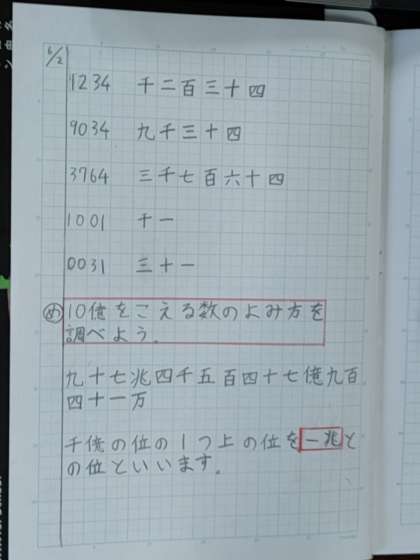 6/2
1234 千二百三十四
9034 九千三十四
3764 三千七百六十四
1001 千一
0031 三十一
め 10億をこえる数のよみ方を
調べよう。
九十七兆四千五百四十七億九百
四十一万
千億の位の1つ上の位を一兆と
の位といいます。